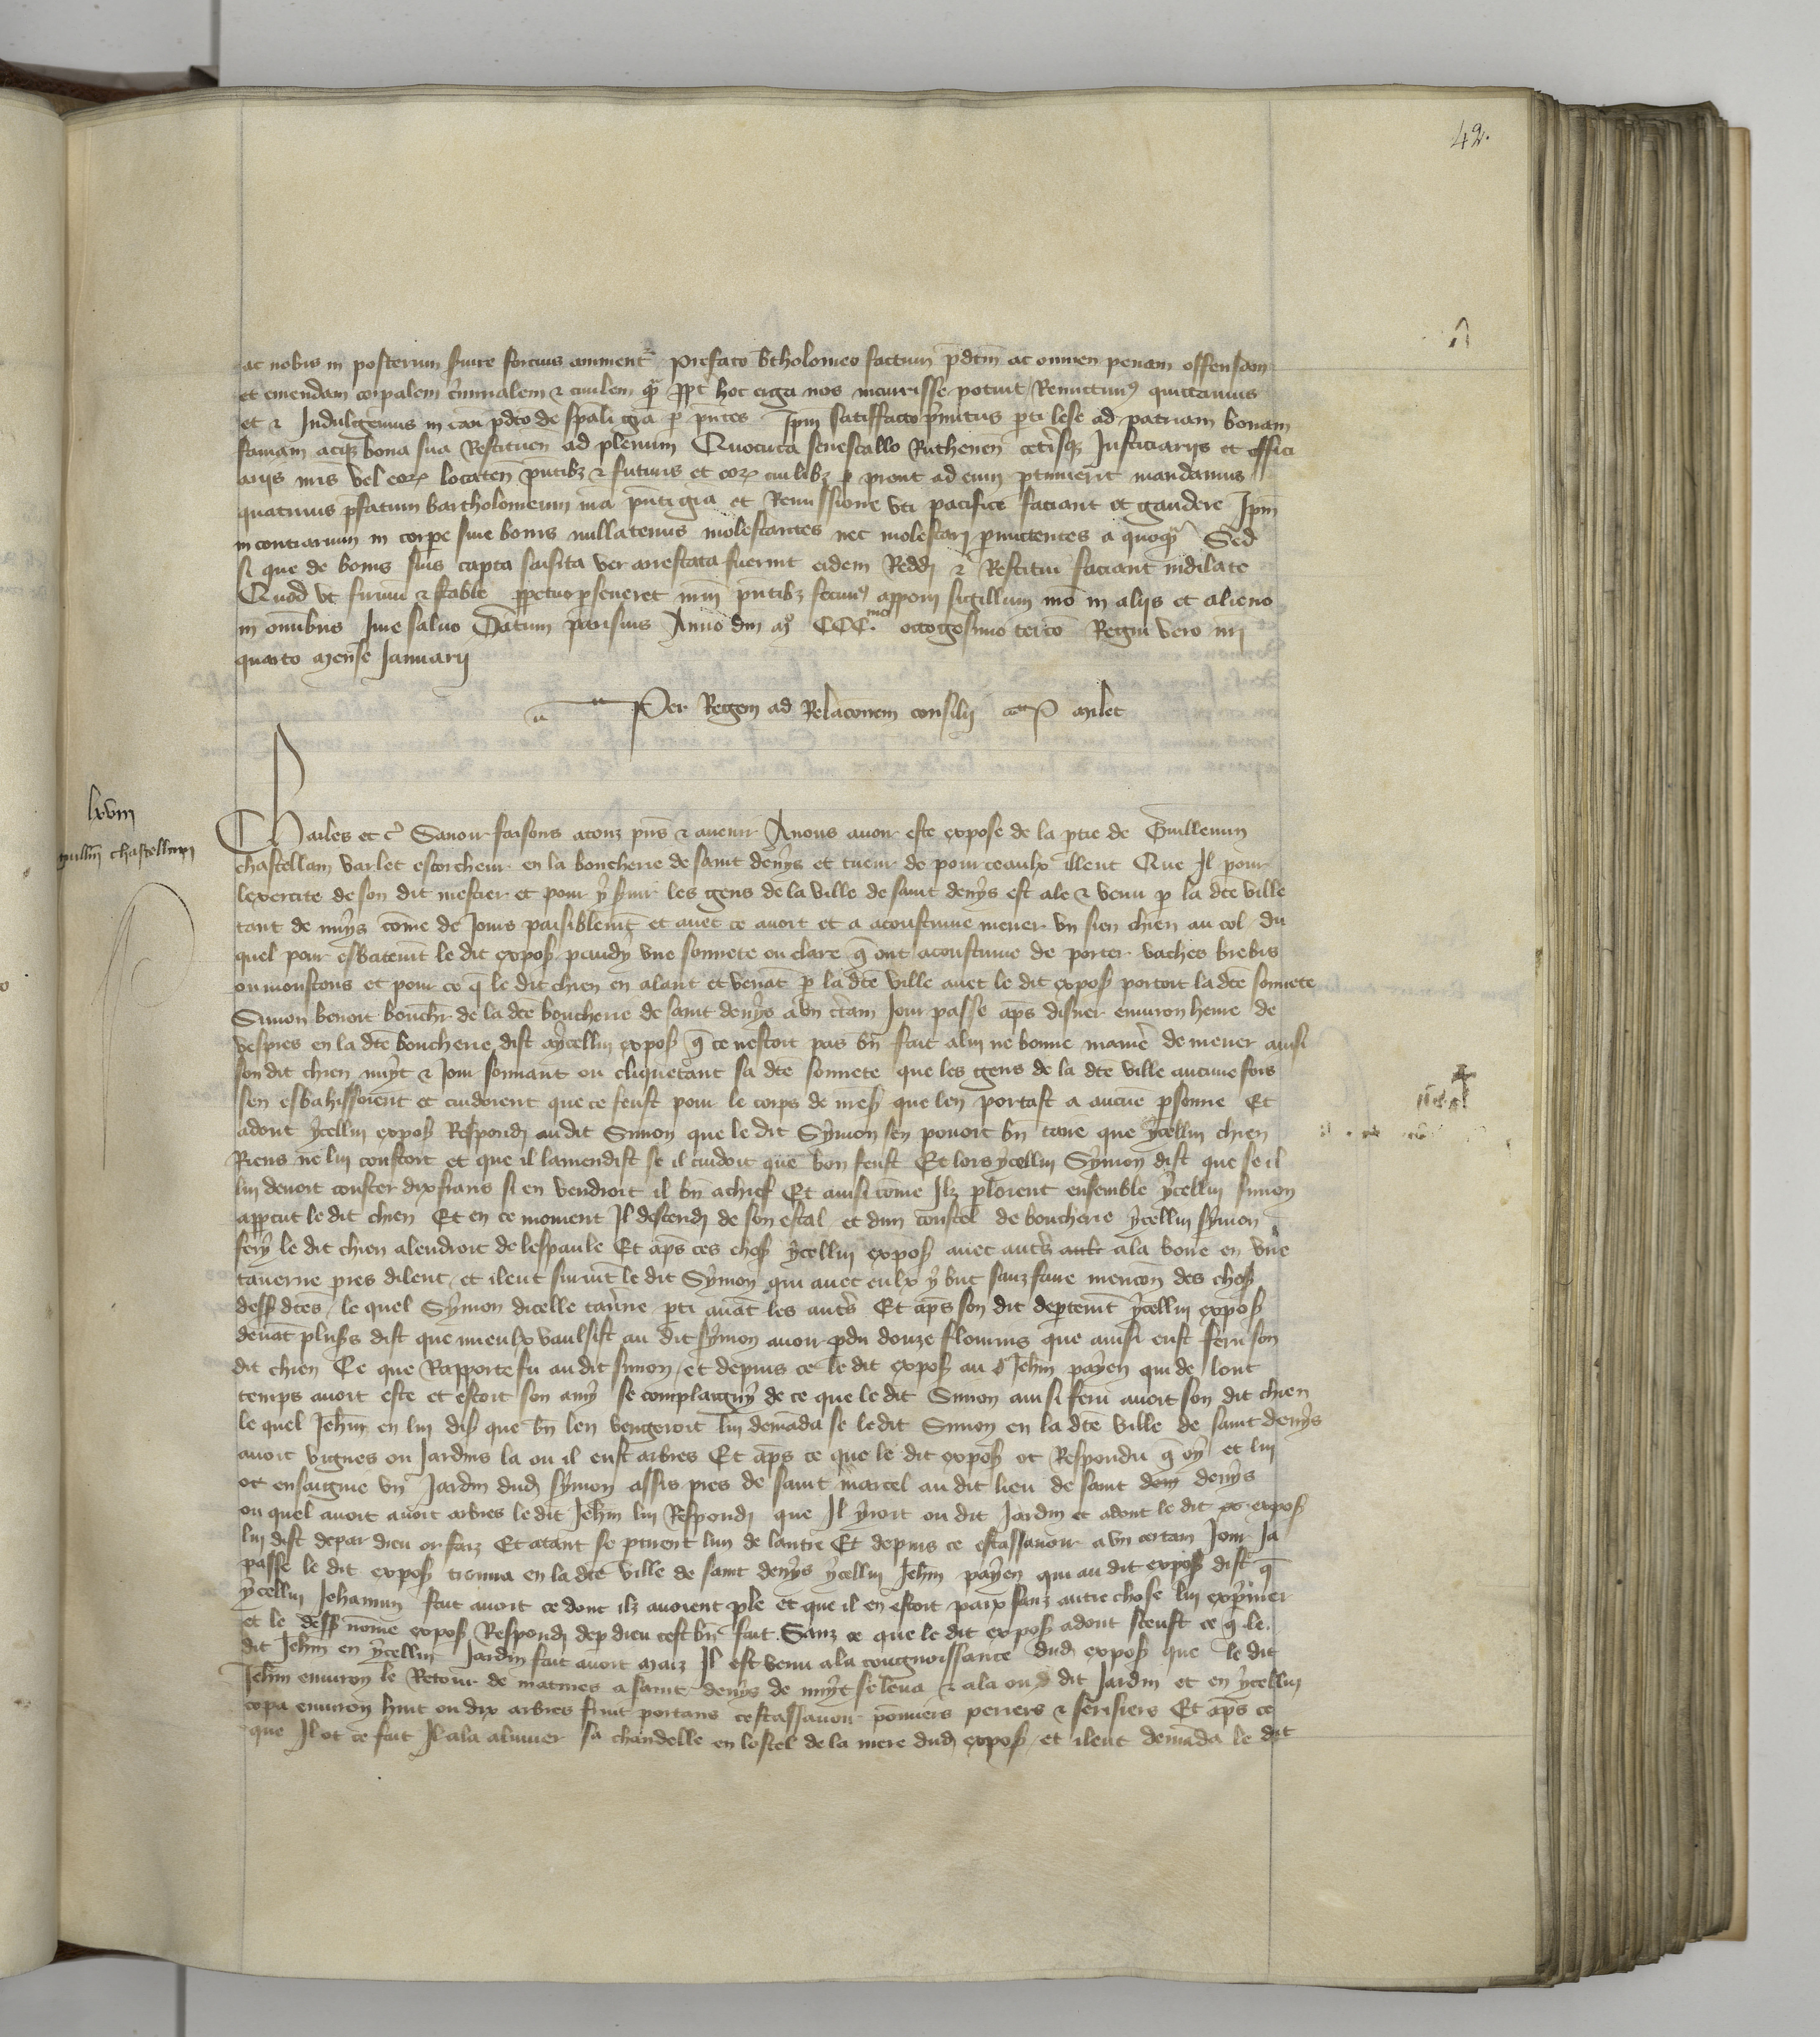 42.
ac nobis in posterum fuire forcius anment2 prefato btholomeo factum pdtm ac omnem penam offensam
et emendam corpalem criminalem & civilem qua ppt hoc erga nos incurisse potuit Remittimus quittamus
et & Indulgemus in casu pdco de spali gra p pntes Ipm satiffacto primitus pti lese ad patriam bonam
famam atqz bona sua Restituen ad plenum Quocirca senescallo Ruthenen cetisqz Justiciariis et offici
ariis nris vel eorz locaten pntibz & futuris et eorz cuilibz p prout ad eum ptinuerit mandamus
quatinus pfatum bartholomeum nra pnti gra et Remissione uti pacifice faciant et gaudere Ipm
in contrarium in corpe sive bonis nullatenus molestantes nec molestari pmittentes a quoqua Sed
si que de bonis suis capta saisita vel arrestata fuerint eidem Reddi & Restitui faciant indilate
Quod ut firmu & stable ppetuo pseveret nrm pntibz fecimus apponi sigillum nro in aliis et alieno
in omibus Jure salvo Datum parisius Anno dni mo CCC.mo octogesimo tercio Regni vero nri
quarto mense Januarii
Per Regem ad Relaconem consilii P milet
lxviii
guillm chastellain
Charles etc Savoir faisons a touz pns & avenir A nous avoir este expose de la ptie de Guillemin
chastellain varlet escorcheur en la boucherie de saint denys et tueur de pourceaulx illeuc Que Il pour
lexercite de son dit mestier et pour y svir les gens de la ville de saint denys est ale & venu p la dte ville
tant de nuys come de Jours paisiblemt et avec ce avoit et a acoustume mener un sien chien au col du
quel pour esbatemt le dit expos pendy une sonnete ou clare q ont acoustume de porter vaches brebis
ou moustons et pour ce q le dit chien en alant et venat p la dte ville avec le dit expos portoit la dte sonnete
Simon benoit bouchr de la dte boucherie de saint denys a un ctain Jour passe aps disner environ heure de
vespres en la dte boucherie dist a ycellui expos q ce nestoit pas bn fait a lui ne bonne manie de mener ainsi
son dit chien nuyt & Jour sonnant ou cliquetant sa dte sonnete que les gens de la dte ville aucune fois
sen esbahissoient et cuidoient que ce feust pour le corps de nres que len portast a aucue psonne Et
adont ycellui expos Respondi au dit Simon que le dit Symon sen povoit bn taire que ycellui chien
Riens ne lui coustoit et que il lamendist se il cuidoit que bon feust Et lors ycellui Symon dist que se il
lui devoit couster dix frans si en vendroit il bn a chief Et ainsi come Ilz ploient ensemble ycellui simon
appcut le dit chien Et en ce moment Il descendi de son estal et dun coustel de boucherie ycellui symon
fery le dit chien alendroit de lespaule Et aps ces chos ycellui expos avec auts ala boire en une
taverne pres dilleuc et ileuc survit le dit Symon qui avec eulx y but sanz faire mencon des chos
dess dtes le quel Symon dicelle tavne pti avat les auts Et aps son dit deptemt ycellui expos
devat pluss dist que mieulx vaulsist au dit symon avoir pdu douze flourins que ainsi eust feru son
dit chien Ce que Rapporte fu au dit simon et depuis ce le dit expos au d Jehn payen qui de lonc
temps avoit este et estoit son amy se complaigny de ce que le dit Simon ainsi feru avoit son dit chien
le quel Jehn en lui dis que bn len vengeroit lui demada se le dit Simon en la dte ville de saint denys
avoit vignes ou Jardins la ou il eust arbres Et aps ce que le dit expos ot Respondu q oy et lui
ot ensaigne un Jardin dud symon assis pres de saint marcel au dit lieu de saint deny denys
ou quel avoit avoit arbres le dit Jehn lui Respondi que Il yroit ou dit Jardin et adont le dit ex expos
lui dist depar dieu or faiz Et atant se ptirent lun de lautre Et depuis ce estassavoir a un certain Jour Ja
passe le dit expos trouva en la dte ville de saint denys ycellui Jehn payen qui au dit expos dist q
ycellui Jehannin fait avoit ce dont ilz avoient ple et que il en estoit paix sanz autre chose lui exprimer
et le dess nome expos Respondi dep dieu cest bn fait Sanz ce que le dit expos adont sceust ce q le
dit Jehn en ycellui Jardin fait avoit maiz Il est venu a la congnoissance dud expos que le dit
Jehn environ le Retour de matines a saint denys de nuyt se leva & ala ou d dit Jardin et en ycellui
copa environ huit ou dix arbres fruit portans cestassavoir pomiers periers & serisiers Et aps ce
que Il ot ce fait Il ala alumer sa chandelle en lostel de la mere dud expos et ileuc demada le dit